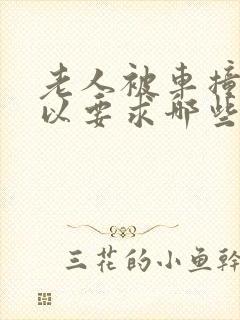 老人被车撞
以要求哪些
三花的小鱼幹